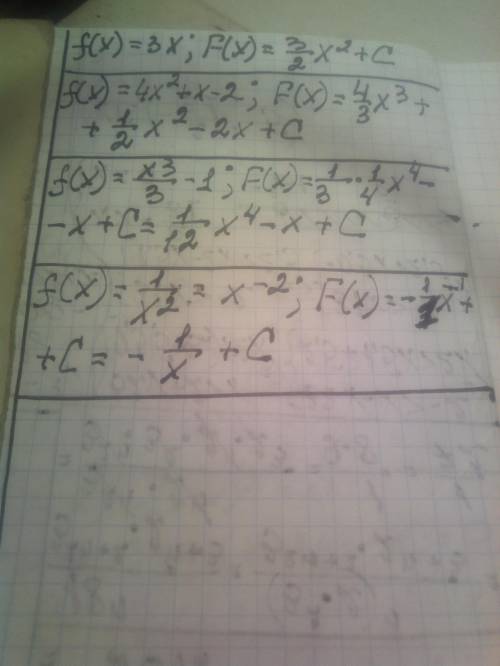 f(x) = 3x; F(x) = 3/2 x² + C
f(x) = 4x² + x - 2; F(x) = 4/3 x³ +
+ 1/2 x² - 2x + C
f(x) = x3/3 - 1; F(x) = 1/3 · 1/4 x⁴ -
- x + C = 1/12 x⁴ - x + C
f(x) = 1/x² = x⁻²; F(x) = - 1/1 x⁻¹ +
+ C = - 1/x + C